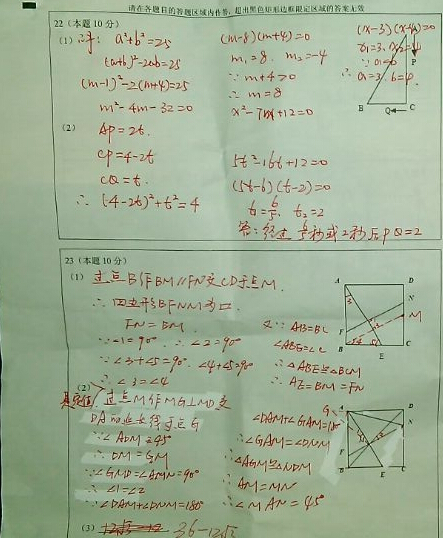 请在各题目的答题区域内作答，超出黑色矩形边框限定区域的答案无效
22 (本题 10 分)
(1) a²+b²=25
(a+b)²-2ab=25
(m-1)²-2(m+4)=25
m²-4m-32=0
(m-8)(m+4)=0
m₁=8. m₂=-4
∵ m+4>0
∴ m=8
x²-7x+12=0
(x-3)(x-4)=0
x₁=3, x₂=4
A
P
B
Q
C
(2)
AP=2t.
CP=4-2t
CQ=t.
∴ (4-2t)²+t²=4
5t²-16t+12=0
(5t-6)(t-2)=0
t₁=6/5, t₂=2
答: 经过 6/5 秒或 2 秒后 PQ=2
23 (本题 10 分)
(1) 过点B作BM∥FN交CD于点M.
∴ 四边形BFNM为▱
FN=BM.
∵∠1=90° ∴∠2=90°
∵∠3+∠5=90° ∠4+∠5=90°
∴ ∠3=∠4
又∵ AB=BC
∠ABE=∠C
∴ △ABE≌△BCM
∴ AE=BM=FN
A
D
N
M
F
B
E
C
(2)
过点M作MG⊥MD交
DA的延长线于点G
∵∠ADM=45°
∴ DM=GM
∵∠GMD=∠AMN=90°
∴∠1=∠2
∵∠DAM+∠DNM=180°
∠DAM+∠GAM=180°
∴∠GAM=∠DNM
∴△AGM≌△NDM
∴ AM=MN
∴∠MAN=45°
G
A
D
N
F
B
E
C
(3) 36-12√5